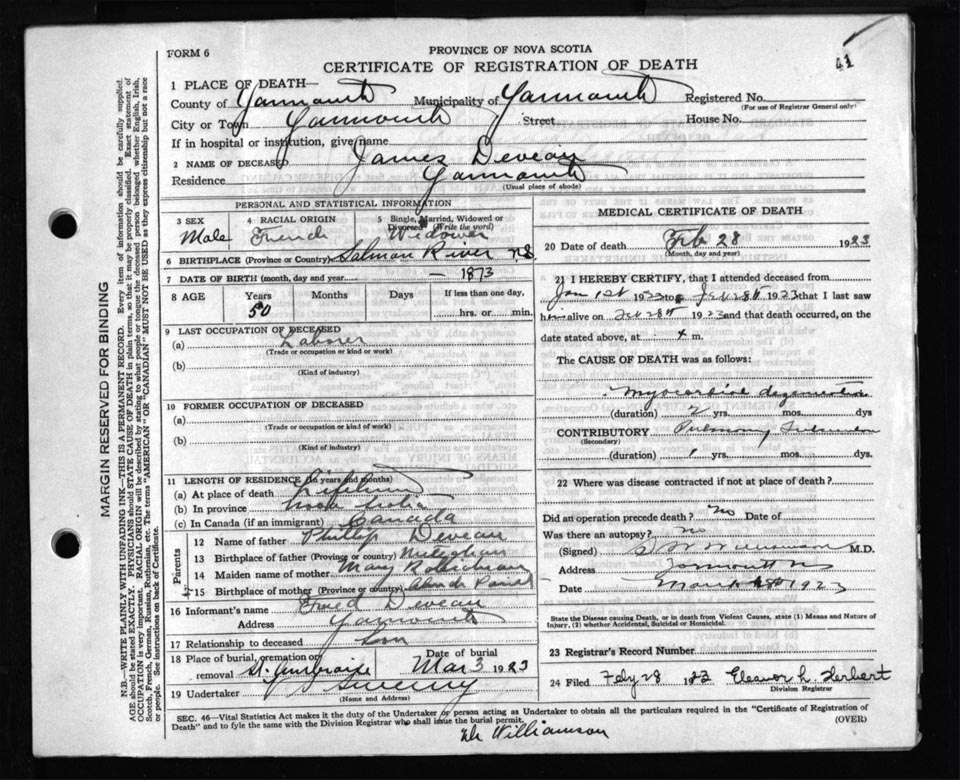 41
FORM 6
PROVINCE OF NOVA SCOTIA
CERTIFICATE OF REGISTRATION OF DEATH
1 PLACE OF DEATH—
County of Yarmouth Municipality of Yarmouth Registered No.
(For use of Registrar General only)
City or Town Yarmouth Street House No.
If in hospital or institution, give name
2 NAME OF DECEASED James Deveau
Residence Yarmouth
(Usual place of abode)
PERSONAL AND STATISTICAL INFORMATION
3 SEX 4 RACIAL ORIGIN 5 Single, Married, Widowed or Divorced (Write the word)
Male French Widower
6 BIRTHPLACE (Province or Country) Salmon River N.S.
7 DATE OF BIRTH (month, day and year) — 1873
8 AGE Years Months Days If less than one day,
50 hrs. or min.
9 LAST OCCUPATION OF DECEASED
(a) Laborer
(Trade or occupation or kind or work)
(b)
(Kind of industry)
10 FORMER OCCUPATION OF DECEASED
(a)
(Trade or occupation or kind of work)
(b)
(Kind of industry)
11 LENGTH OF RESIDENCE (in years and months)
(a) At place of death Lifetime
(b) In province Nova Scotia
(c) In Canada (if an immigrant) Canada
Parents
12 Name of father Phillip Deveau
13 Birthplace of father (Province or country)
14 Maiden name of mother Mary
15 Birthplace of mother (Province or country)
16 Informant's name Deveau
Address Yarmouth
17 Relationship to deceased Son
18 Place of burial, cremation or removal St. Date of burial Mar 3 1923
19 Undertaker Sweeny
(Name and Address)
MEDICAL CERTIFICATE OF DEATH
20 Date of death Feb 28 1923
(Month, day and year)
21 I HEREBY CERTIFY, that I attended deceased from
Jan 1st 1923 to Feb 28th 1923 that I last saw
h alive on Feb 28th 1923 and that death occurred, on the
date stated above, at m.
The CAUSE OF DEATH was as follows:
Myocardial degeneration
(duration) 2 yrs. mos. dys
CONTRIBUTORY Pulmonary
(Secondary)
(duration) 1 yrs. mos. dys.
22 Where was disease contracted if not at place of death?
Did an operation precede death? No Date of
Was there an autopsy? no
(Signed) Williamson M.D.
Address Yarmouth NS
Date March 1923
State the Disease causing Death, or in death from Violent Causes, state (1) Means and Nature of
Injury, (2) whether Accidental, Suicidal or Homicidal.
23 Registrar's Record Number
24 Filed Feby 28 1923 Eleanor L. Herbert
Division Registrar
SEC. 46—Vital Statistics Act makes it the duty of the Undertaker or person acting as Undertaker to obtain all the particulars required in the "Certificate of Registration of
Death" and to fyle the same with the Division Registrar who shall issue the burial permit. (OVER)
Dr Williamson
MARGIN RESERVED FOR BINDING
N.B.—WRITE PLAINLY WITH UNFADING INK—THIS IS A PERMANENT RECORD. Every item of information should be carefully supplied.
AGE should be stated EXACTLY. PHYSICIANS should STATE CAUSE OF DEATH in plain terms, so that it may be properly classified. Exact statement of
OCCUPATION is very important. RACIAL ORIGIN will be described by stating to what people or tongue the deceased person belonged whether English, Irish,
Scotch, French, German, Russian, Ruthenian, etc. The terms "AMERICAN" OR "CANADIAN" MUST NOT BE USED as they express citizenship but not a race
or people. See instructions on back of Certificate.